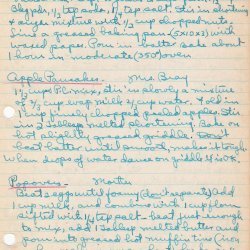 eggs, 1/2 tsp soda, 1/4 tsp salt. Stir in shortening
& algix mixture with 1/2 cup chopped nuts.
Line a greased baking pan (5x10x3) with
waxed paper. Pour in batter. Bake about
1 hour in moderate (350°) oven
Apple Pancakes. Mrs Bray
1 1/2 cups Pd. mix, stir in slowly a mixture
of 2/3 cup evap milk & cup water. Fold in
1 cup finely chopped peeled apples. Stir
in 2 tablesp melted shortening. Bake
on a slightly greased griddle. Don't
beat batter until smooth, makes it tough
When drops of water dance on griddle it is ok.
Popovers. Martin
Beat 2 eggs until foamy (don't separate) Add
1 cup milk, and combine with 1 cup flour
sifted with 1/4 tsp salt - beat just enough
to mix, add 1 tablesp melted butter and
pour into greased hot muffin tins (not